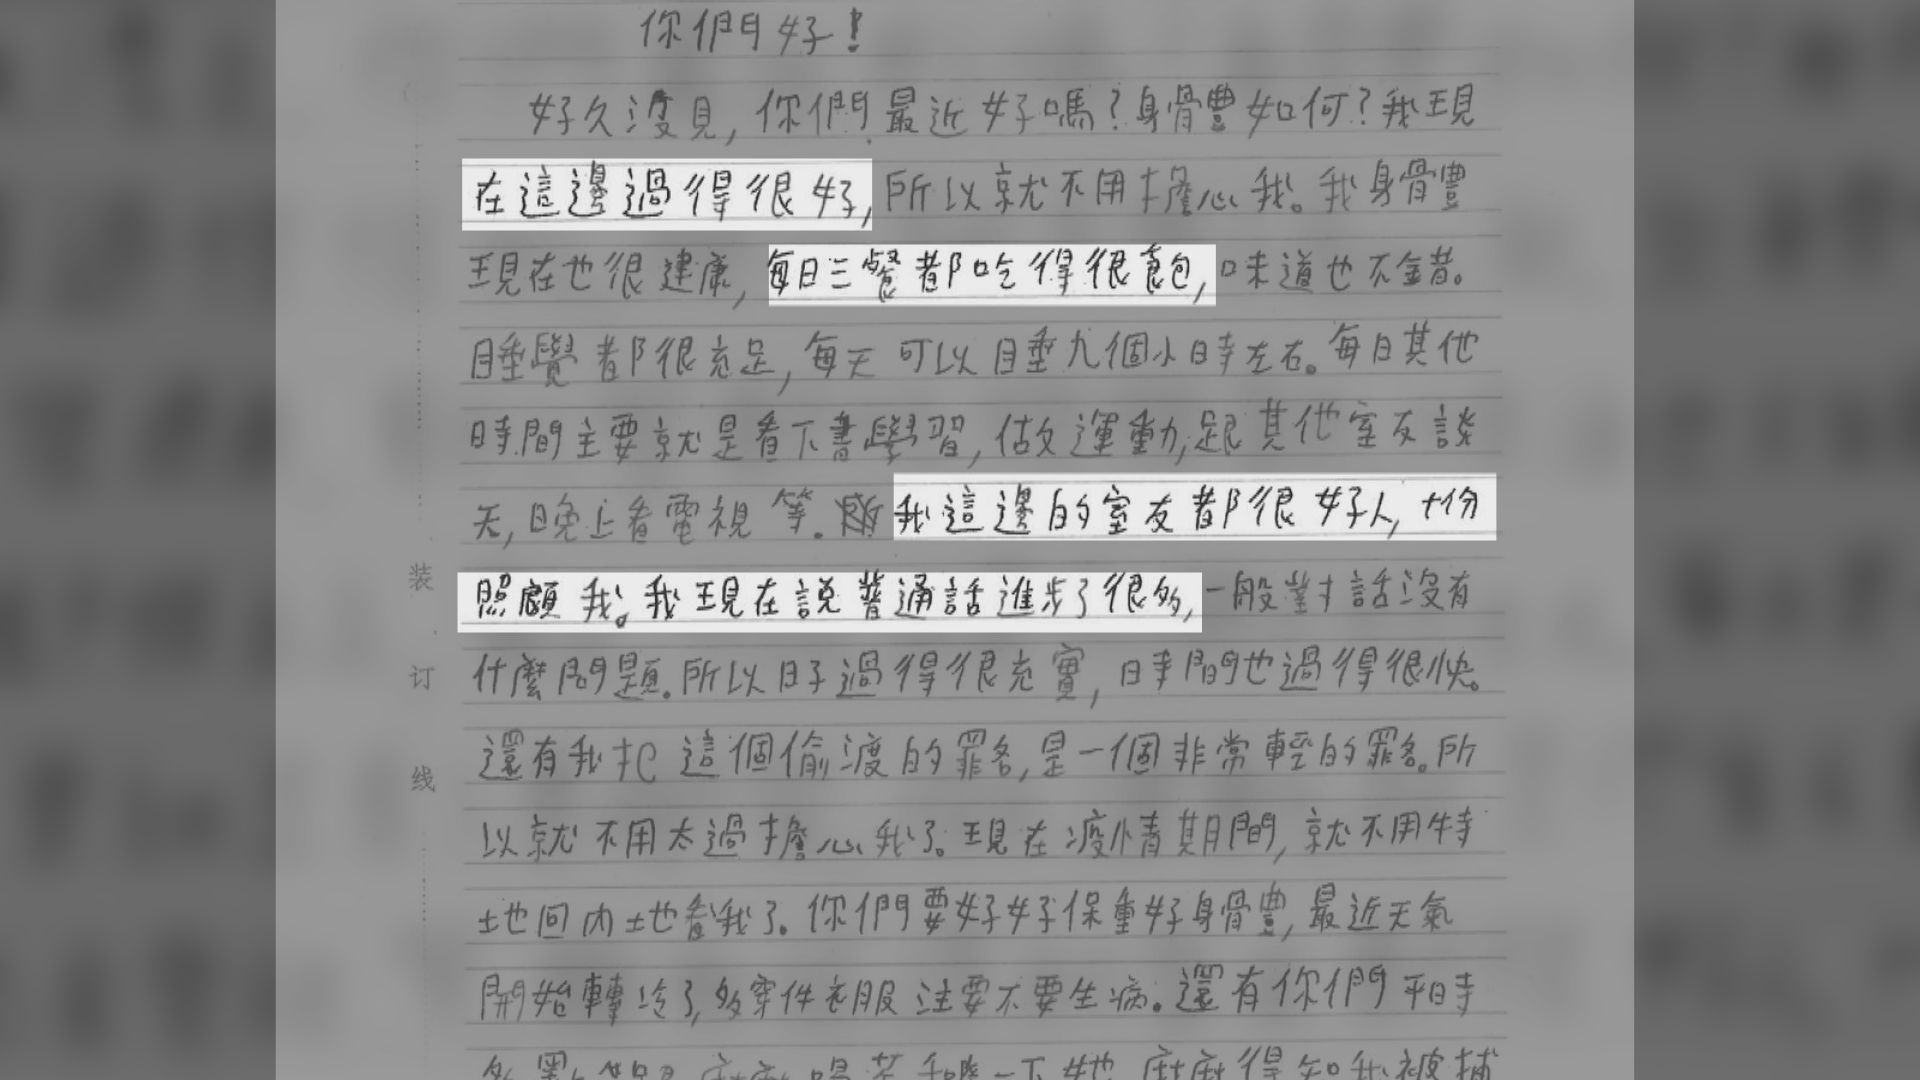 你們好!
好久沒見,你們最近好嗎?身體如何?我現
在這邊過得很好,所以就不用擔心我。我身體
現在也很建康,每日三餐都吃得很飽,味道也不錯。
睡覺都很充足,每天可以睡九個小時左右。每日其他
時間主要就是看下書學習,做運動,跟其他室友談
天,晚上看電視等。我這邊的室友都很好人,十份
照顧我。我現在說普通話進步了很多,一般對話沒有
什麼問題。所以日子過得很充實,時間也過得很快。
還有我犯這個偷渡的罪名,是一個非常輕的罪名。所
以就不用太過擔心我了。現在疫情期間,就不用特
地回內地看我了。你們要好好保重好身體,最近天氣
開始轉冷了,多穿件衣服注要不要生病。還有你們平時
一下她 得知我被捕
装
订
线